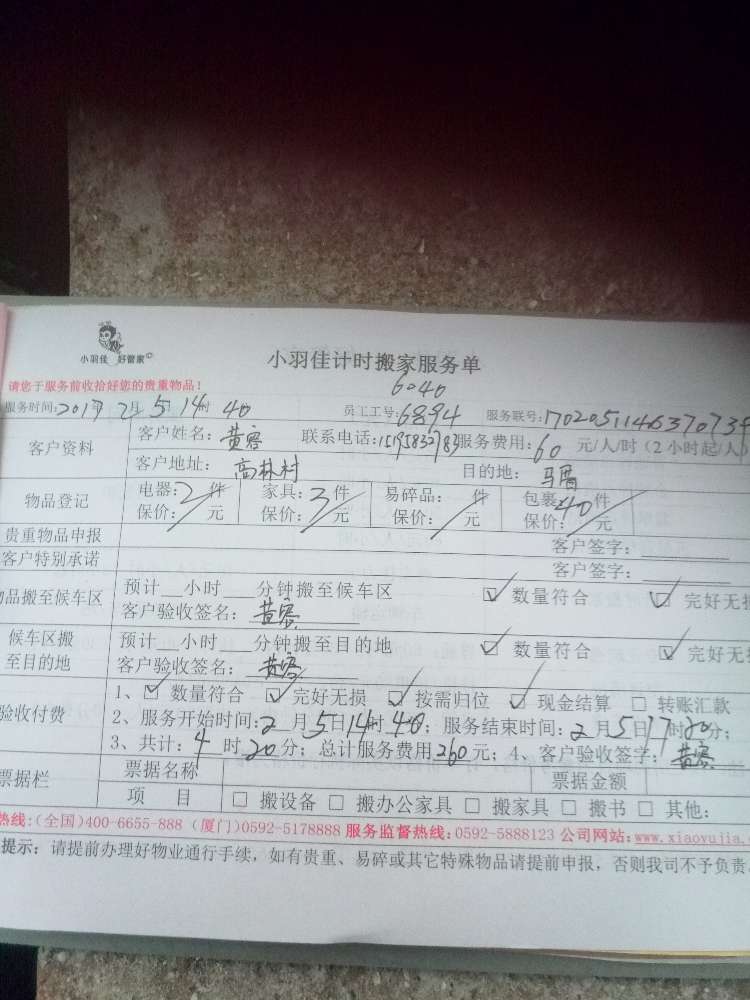 小羽佳 好管家
小羽佳计时搬家服务单
请您于服务前收拾好您的贵重物品！
6040
服务时间:2017年2月5 14时 40 员工工号:6894 服务联号:
客户资料 客户姓名：黄容 联系电话:15195832783 服务费用:60 元/人/时（2小时起/人）
客户地址：高林村 目的地：马厝
物品登记 电器:2件 家具:3件 易碎品: 件 包裹:40件
保价: 元 保价: 元 保价: 元 保价: 元
贵重物品申报 客户签字:
客户特别承诺 客户签字:
物品搬至候车区 预计 小时 分钟搬至候车区 数量符合 完好无损
客户验收签名：黄容
候车区搬至目的地 预计 小时 分钟搬至目的地 数量符合 完好无损
客户验收签名：黄容
验收付费 1、数量符合 完好无损 按需归位 现金结算 转账汇款
2、服务开始时间:2月5日14时40; 服务结束时间:2月5日17时20分;
3、共计:4时20分; 总计服务费用260元; 4、客户验收签字:黄容
票据栏 票据名称 票据金额
项 目 搬设备 搬办公家具 搬家具 搬书 其他:
热线:(全国)400-6655-888 (厦门)0592-5178888 服务监督热线:0592-5888123 公司网站:www.xiaoyujia.
提示：请提前办理好物业通行手续，如有贵重、易碎或其它特殊物品请提前申报，否则我司不予负责。